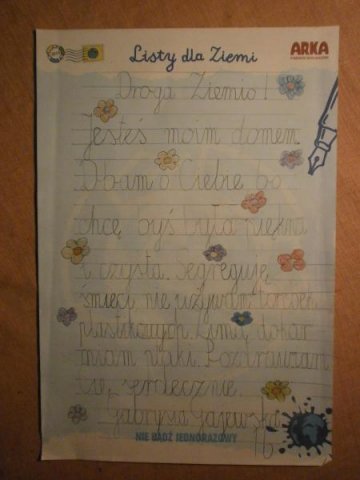 Listy dla Ziemi
ARKA
Droga Ziemio!
Jesteś moim domem.
Dbam o Ciebie bo
chcę byś była piękna
i czysta. Segreguję
śmieci, nie używam torebek
plastikowych. Zimą dokar
miam ptaki. Pozdrawiam
Cię serdecznie.
Gabrysia Gajewska
NIE BĄDŹ JEDNORAZOWY